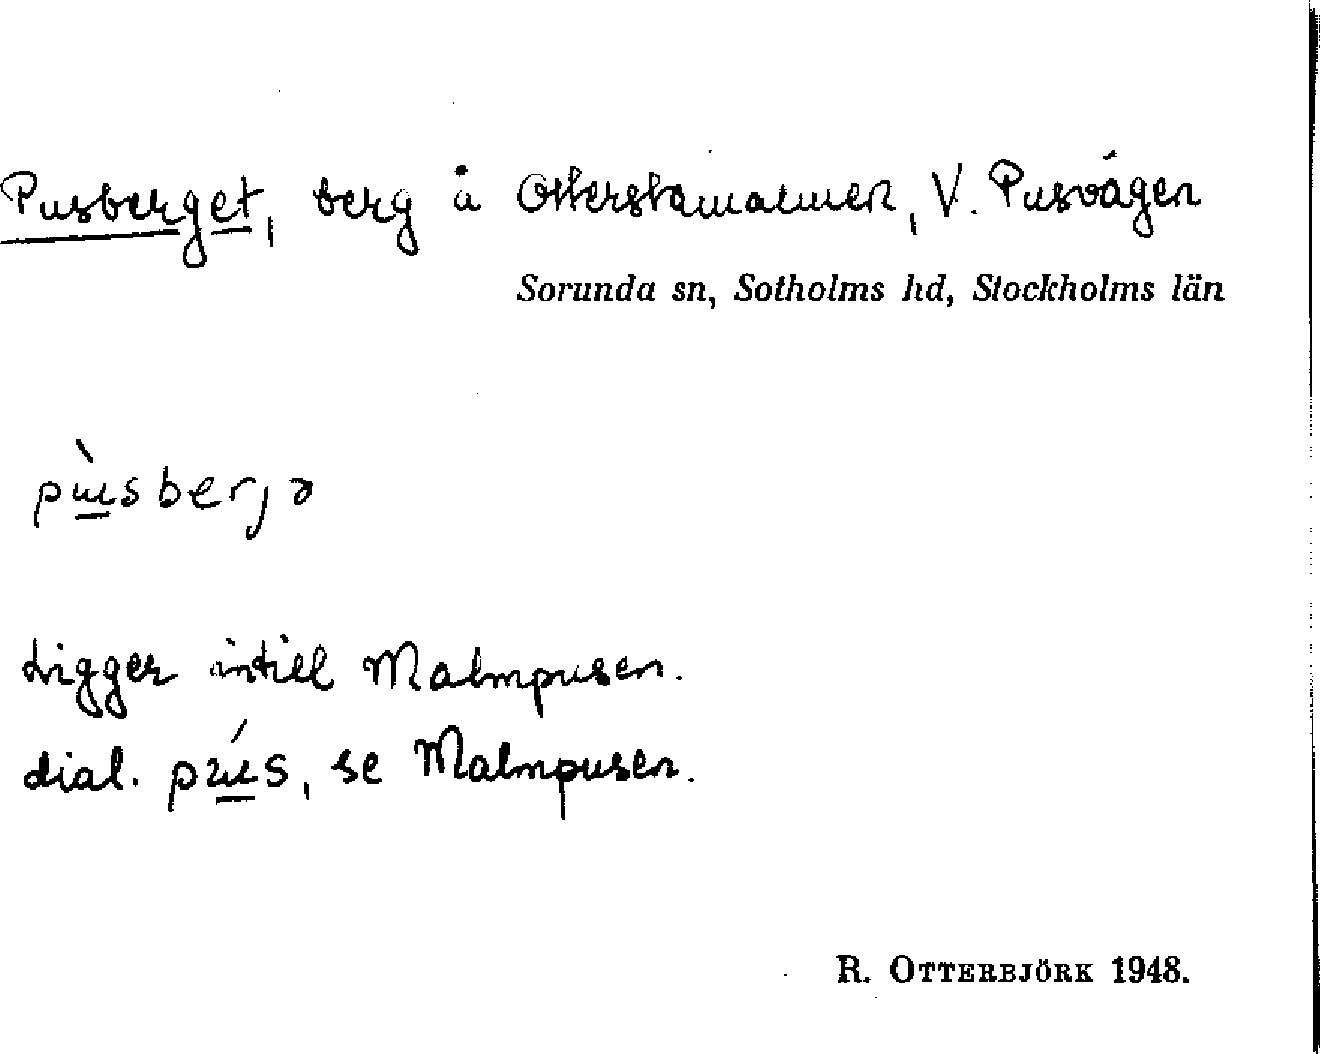 Pusberget, berg å Otterstamalmen, V. Pusvägen
Sorunda sn, Sotholms hd, Stockholms län
pùsberjə
Ligger intill Malmpusen.
dial. pús, se Malmpusen.
R. OTTERBJÖRK 1948.